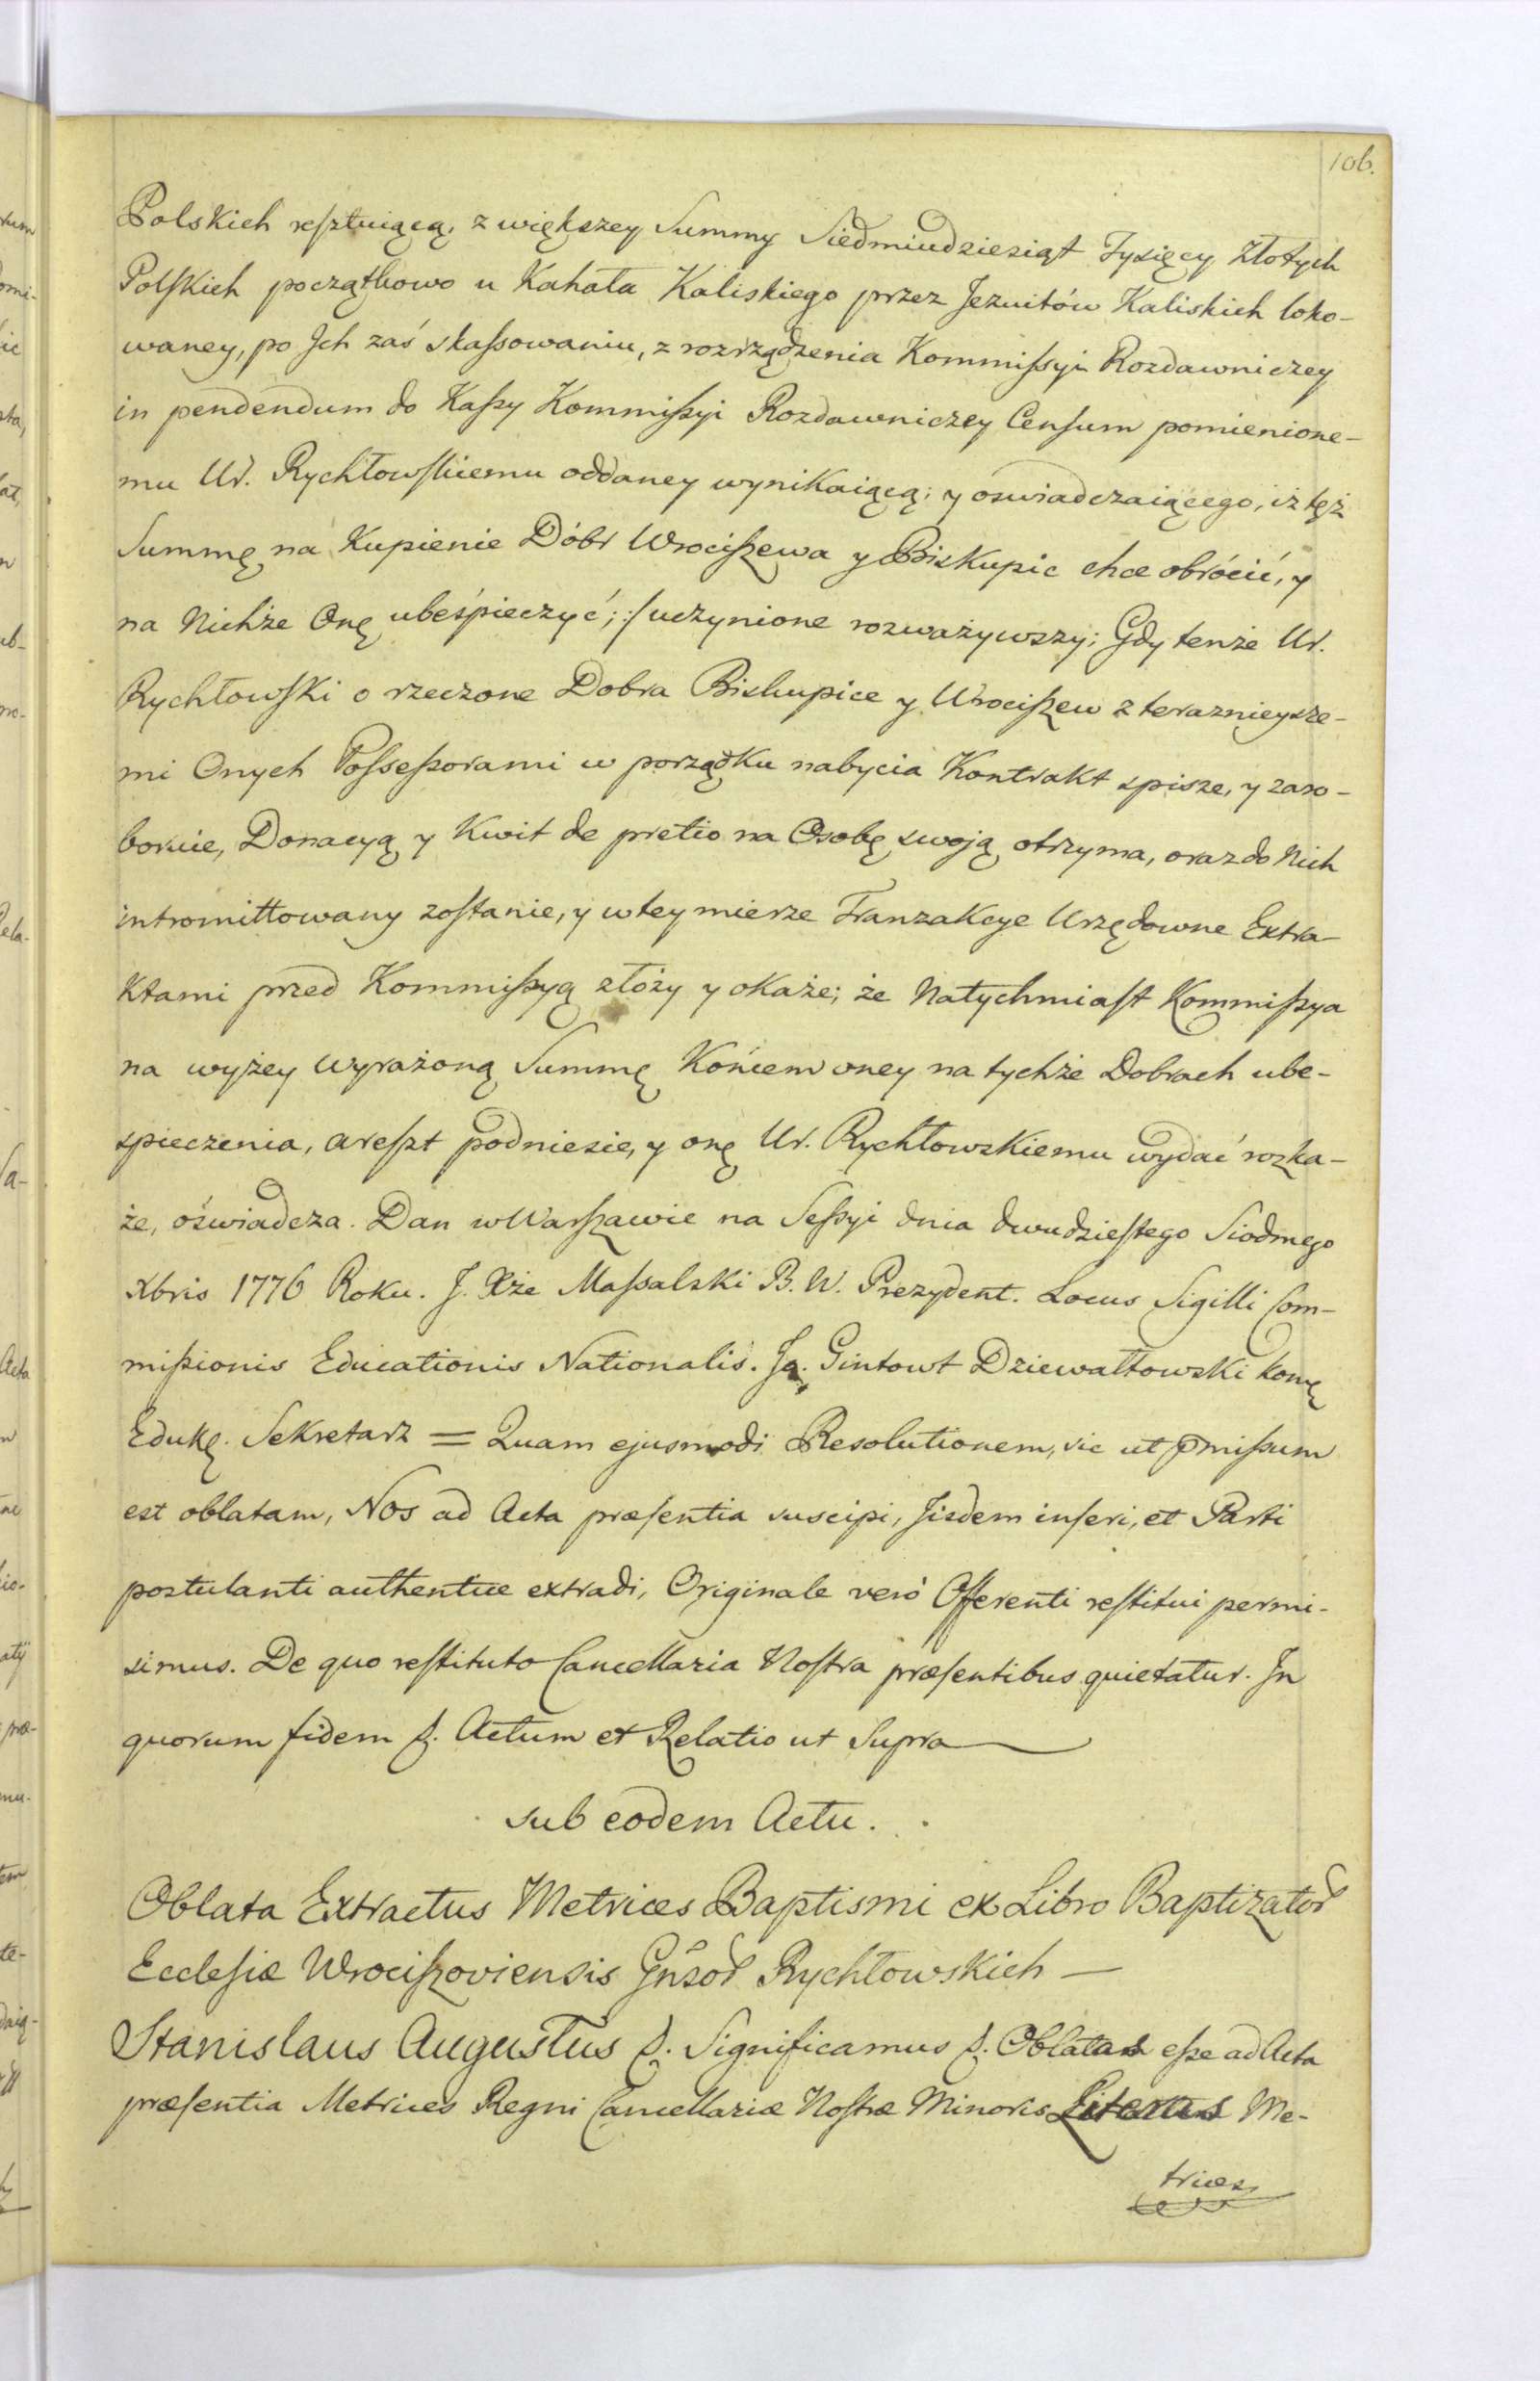 106.
Polskich resztuiącą, z większey Summy Siedmiudziesiąt Tysięcy Złotych
Polskich początkowo u Kahała Kaliskiego przez Jezuitów Kaliskich loko-
waney, po Jch zaś skassowaniu, z rozrządzenia Kommissyi Rozdawniczey
in pendendum do Kassy Kommissyi Rozdawniczey Censum pomienione-
mu Ur. Rychłowskiemu oddaney wynikaiącą; y oswiadczaiącego, iż tęż
Summę na Kupienie Dóbr Wrociszewa y Biskupic chce obrócić, y
na Nichże Onę ubeśpieczyć; :/ uczynione rozważywszy; Gdy tenże Ur.
Rychłowski o rzeczone Dobra Biskupice y Wrociszew z teraznieysze-
mi Onych Possessorami w porządku nabycia Kontrakt spisze, y zaro-
boruie, Donacyą y Kwit de pretio na Osobę swoją otrzyma, oraz do Nich
intromittowany zostanie, y w tey mierze Tranzakcye Urzędowne Extra-
ktami przed Kommissyą złoży y okaże; że Natychmiast Kommissya
na wyżey wyrażoną Summę Końcem oney na tychże Dobrach ube-
spieczenia, areszt podniesie, y onę Ur. Rychłowskiemu wydać rozka-
że, oświadcza. Dan w Warszawie na Sessyi dnia dwudziestego Siodmego
Xbris 1776 Roku. J. Xże Massalski B. W. Prezydent. Locus Sigilli Com-
missionis Educationis Nationalis. Jg. Gintowt Dziewałtowski komę
Edukę. Sekretarz = Quam ejusmodi Resolutionem, sic ut p̄missum
est oblatam, Nos ad Acta præsentia suscipi, Jisdem inseri, et Parti
postulanti authentice extradi, Originale verò Offerenti restitui permi-
simus. De quo restituto Cancellaria Nostra præsentibus quietatur. Jn
quorum fidem p. Actum et Relatio ut Supra
Sub eodem Actu.
Oblata Extractus Metrices Baptismi ex Libro Baptizator
Ecclesiæ Wrociszoviensis Gñsor Rychłowskich —
Stanislaus Augustus p. Significamus p. Oblatas esse ad Acta
præsentia Metrices Regni Cancellariæ Nostræ Minoris Literas Me-
trices